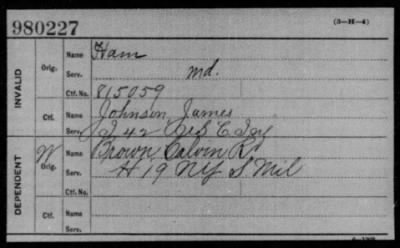 980227
(3-H-4)
INVALID
Orig. Name Ham
Serv. Md.
Ctf. No. 815059
Ctf. Name Johnson James
Serv. I 42 Inf
DEPENDENT
W Orig. Name Brown, Calvin R.
Serv. H 19 NY S Mil
Ctf. No.
Ctf. Name
Serv.